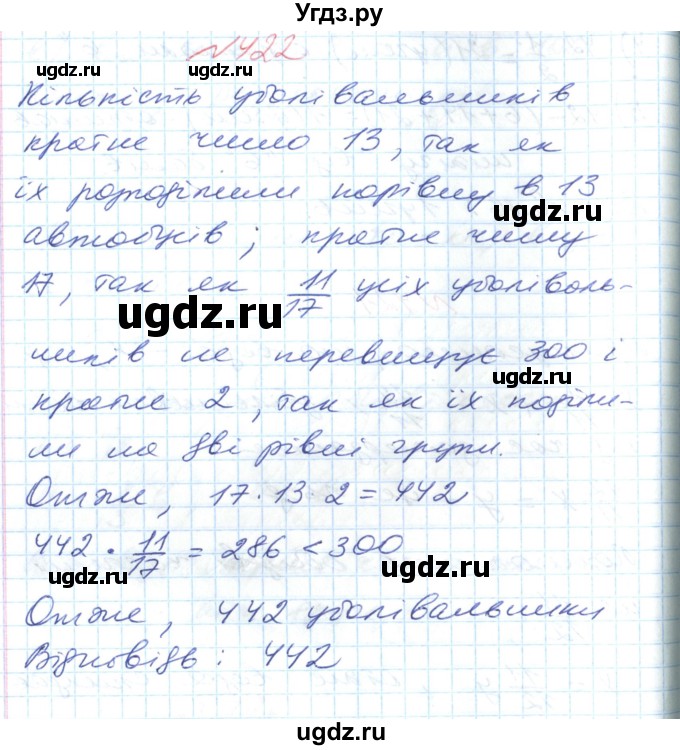 Угдз.ру
№422
Кількість уболівальників
кратне число 13, так як
їх розподілили порівну в 13
автобусів; кратне числу
17, так як 11/17 усіх уболіваль-
ників не перевищує 300 і
кратне 2, так як їх поділи-
ли на дві рівні групи.
Отже, 17·13·2 = 442
442 · 11/17 = 286 < 300
Отже, 442 уболівальники
Відповідь: 442
ugdz.ru
ugdz.ru
ugdz.ru
ugdz.ru
ugdz.ru
ugdz.ru
ugdz.ru
ugdz.ru
ugdz.ru
ugdz.ru